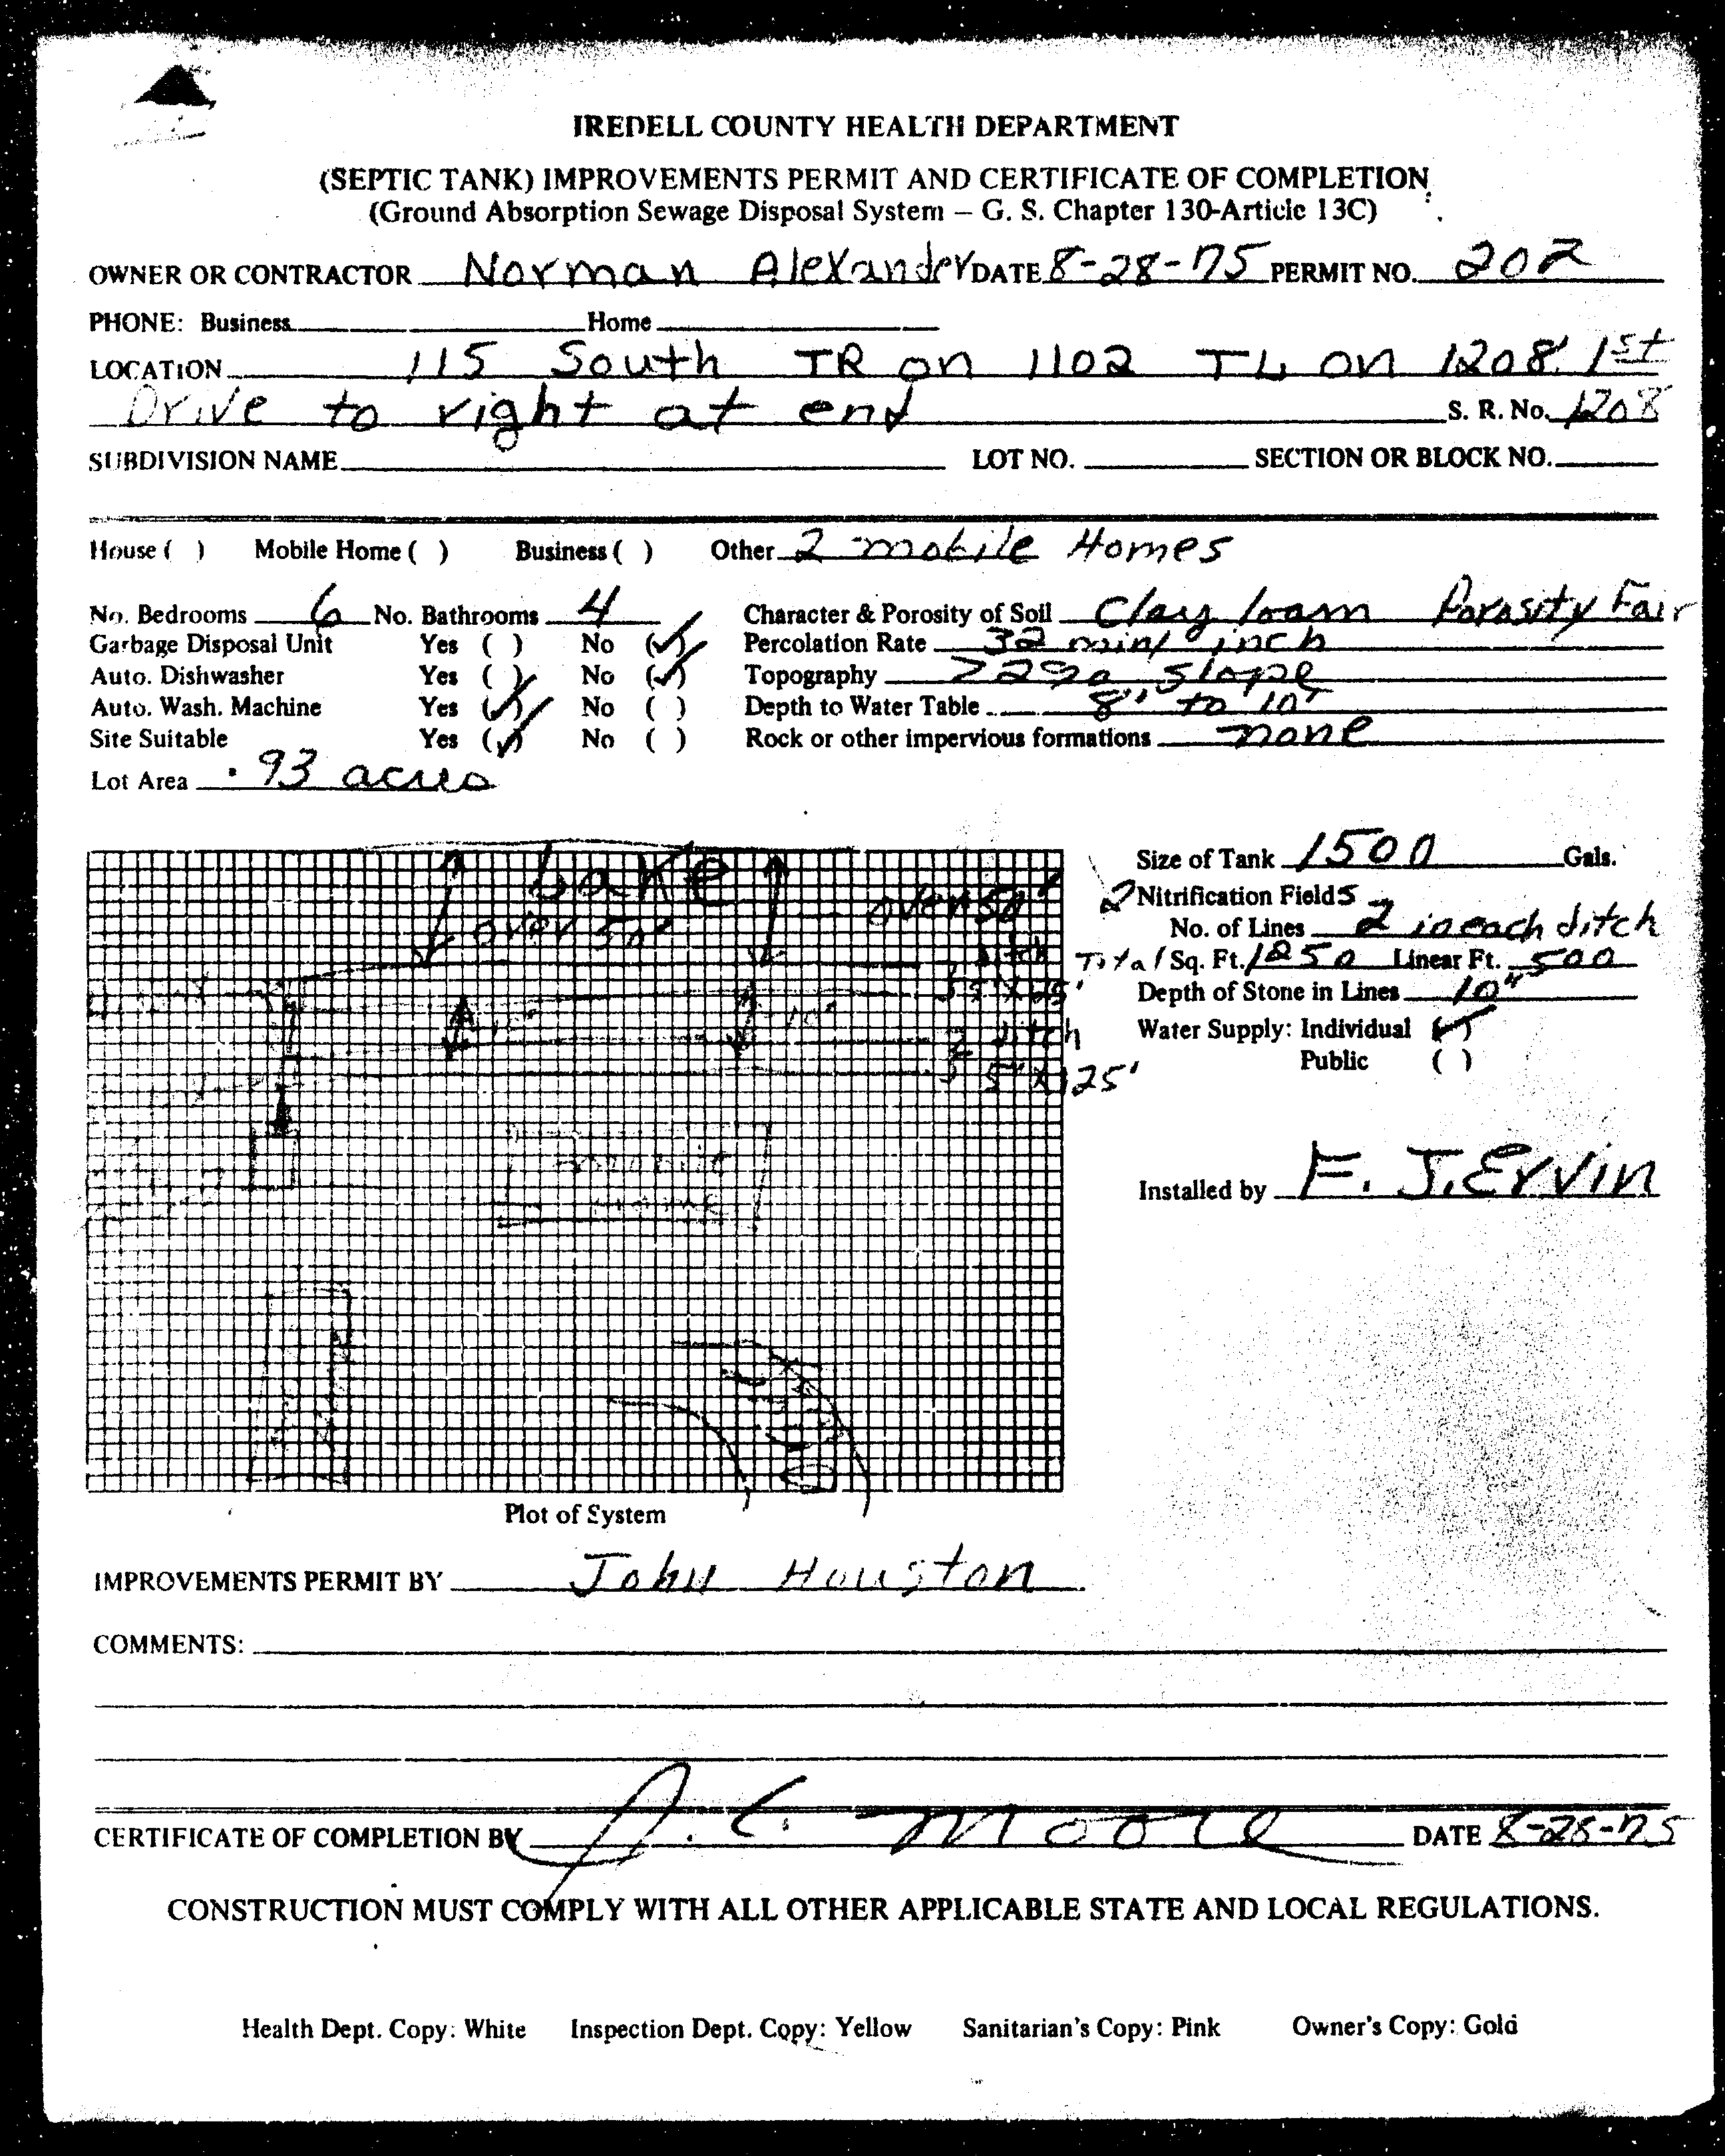 IREDELL COUNTY HEALTH DEPARTMENT
(SEPTIC TANK) IMPROVEMENTS PERMIT AND CERTIFICATE OF COMPLETION
(Ground Absorption Sewage Disposal System – G. S. Chapter 130-Article 13C)
OWNER OR CONTRACTOR Norman Alexander DATE 8-28-75 PERMIT NO. 202
PHONE: Business Home
LOCATION 115 South TR on 1102 TL on 1208 1st
Drive to right at end S. R. No. 1208
SUBDIVISION NAME LOT NO. SECTION OR BLOCK NO.
House ( ) Mobile Home ( ) Business ( ) Other 2 mobile Homes
No. Bedrooms 6 No. Bathrooms 4 Character & Porosity of Soil Clay loam Porosity Fair
Garbage Disposal Unit Yes ( ) No (✓) Percolation Rate 32 min/inch
Auto. Dishwasher Yes ( ) No (✓) Topography slope
Auto. Wash. Machine Yes (✓) No ( ) Depth to Water Table 8' to 10'
Site Suitable Yes (✓) No ( ) Rock or other impervious formations none
Lot Area .93 acres
Size of Tank 1500 Gals.
2 Nitrification Fields
No. of Lines 2 in each ditch
Total Sq. Ft. 1250 Linear Ft. 500
Depth of Stone in Lines 10"
Water Supply: Individual (✓)
Public ( )
Installed by F. J. Ervin
lake
over 50'
over 50'
ditch
ditch
5" X 125'
Plot of System
IMPROVEMENTS PERMIT BY John Houston
COMMENTS:
CERTIFICATE OF COMPLETION BY J. C. Moore DATE 8-28-75
CONSTRUCTION MUST COMPLY WITH ALL OTHER APPLICABLE STATE AND LOCAL REGULATIONS.
Health Dept. Copy: White Inspection Dept. Copy: Yellow Sanitarian's Copy: Pink Owner's Copy: Gold